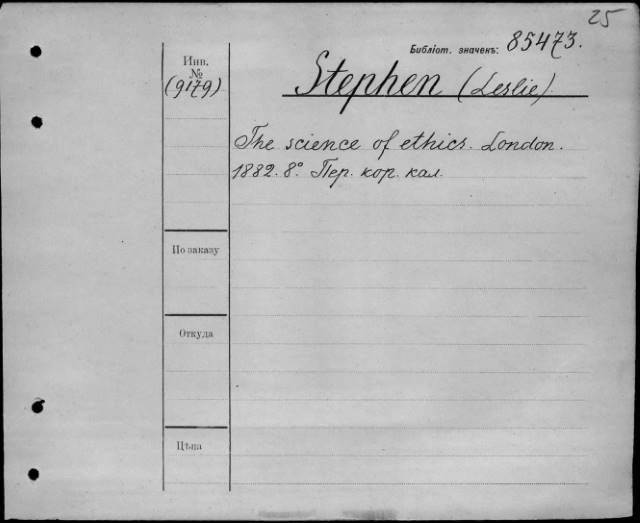 25
Библіот. значекъ: 85473.
Инв.
№
(9179)
Stephen (Leslie).
The science of ethics. London.
1882. 8° Пер. кор. кал.
По заказу
Откуда
Цѣна